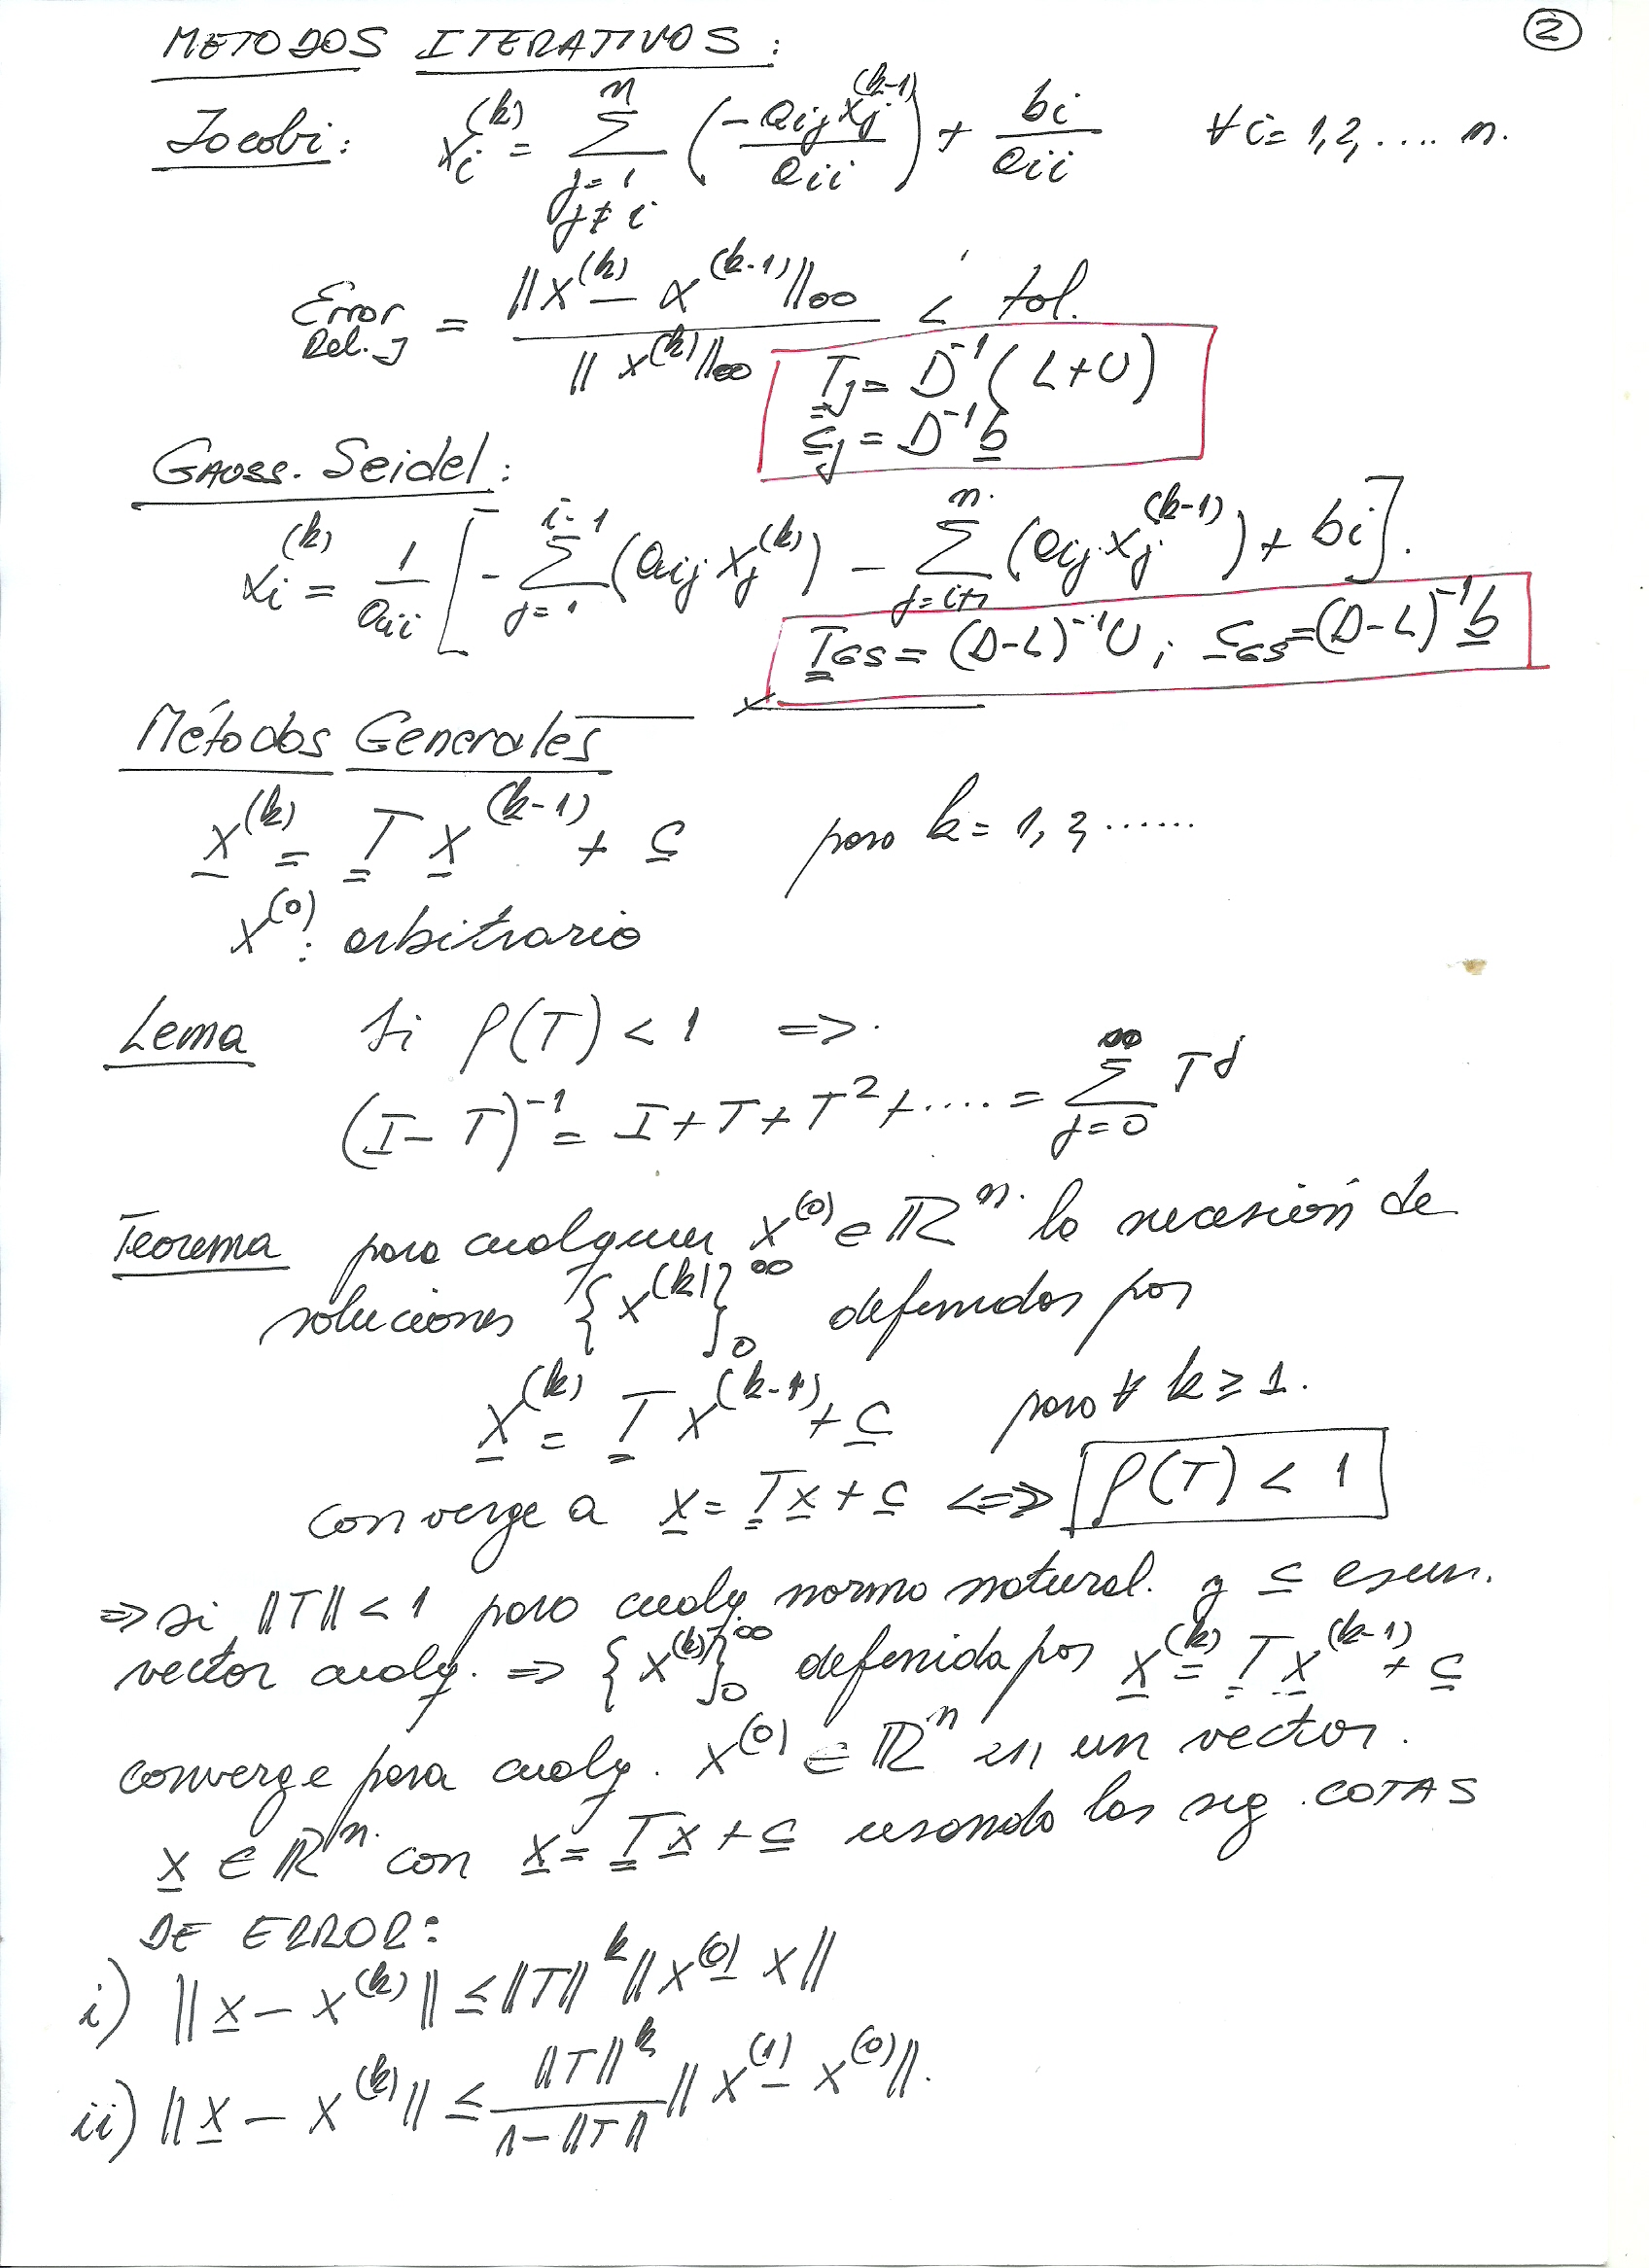 ②
METODOS ITERATIVOS:
Jacobi: xᵢ^(k) = Σ_{j=1, j≠i}^{n} (-aᵢⱼxⱼ^(k-1) / aᵢᵢ) + bᵢ/aᵢᵢ ∀ i = 1,2,.... n.
Error Rel. J = ||x^(k) - x^(k-1)||∞ / ||x^(k)||∞ < tol.
T_J = D⁻¹(L+U)
c_J = D⁻¹b
GAUSS. Seidel:
xᵢ^(k) = 1/aᵢᵢ [- Σ_{j=1}^{i-1} (aᵢⱼ xⱼ^(k)) - Σ_{j=i+1}^{n} (aᵢⱼ xⱼ^(k-1)) + bᵢ].
T_GS = (D-L)⁻¹U ; c_GS = (D-L)⁻¹b
Métodos Generales
x^(k) = T x^(k-1) + c para k = 1, 2, ......
x^(0): arbitrario
Lema Si ρ(T) < 1 =>
(I - T)⁻¹ = I + T + T² + .... = Σ_{j=0}^{∞} T^j
Teorema para cualquier x^(0) ∈ ℝⁿ la sucesión de
soluciones {x^(k)}₀^∞ definidas por
x^(k) = T x^(k-1) + c para ∀ k ≥ 1.
converge a x = Tx + c <=> ρ(T) < 1
=> si ||T|| < 1 para cualq. norma natural. y c es un.
vector cualq. => {x^(k)}₀^∞ definida por x^(k) = T x^(k-1) + c
converge para cualq. x^(0) ∈ ℝⁿ en un vector.
x ∈ ℝⁿ con x = Tx + c usando las sig. COTAS
DE ERROR:
i) ||x - x^(k)|| ≤ ||T||^k ||x^(0) - x||
ii) ||x - x^(k)|| ≤ ||T||^k / (1-||T||) ||x^(1) - x^(0)||.